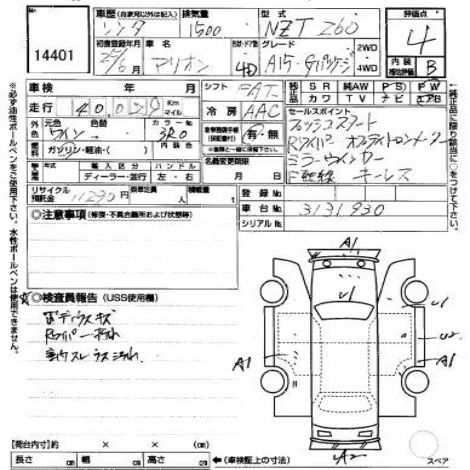 14401
車歴 (自家用以外は記入) 排気量 型式 評価点
1500 NZT 260 4
初度登録年月 車名 形状・ドア数 グレード
25/6 アリオン 4D A15 Gパッケージ 2WD 4WD
内装 補助評価 B
車検 年 月 シフト FAT
走行 40,029 Km マイル 冷房 AAC
純正 SR 純AW PS PW
カワ TV ナビ エアB
外色 元色 色替 カラーNo.
ワイン 3R0
燃料 ガソリン・軽油・( ) 内装色
有・無
セールスポイント
プッシュスタート
Rワイパー オプティトロンメーター
ミラーウインカー
キーレス
輸入区分 ハンドル
ディーラー・並行 左・右
名義変更期限
月 日
リサイクル預託金 11230円 乗車定員 人 積載量 t
登録No.
車台No. 3131930
シリアルNo.
◎注意事項 (修復・不具合箇所および状態等)
◎検査員報告 (USS使用欄)
※必ず油性ボールペンをご使用下さい。水性ボールペンは使用できません。
←純正品に限り該当欄に○をつけて下さい。
A1
U1
U1
U2
A1
A1
A2
スペア
【荷台内寸】 × × ←(車検証上の寸法)
長さ cm 幅 cm 高さ cm